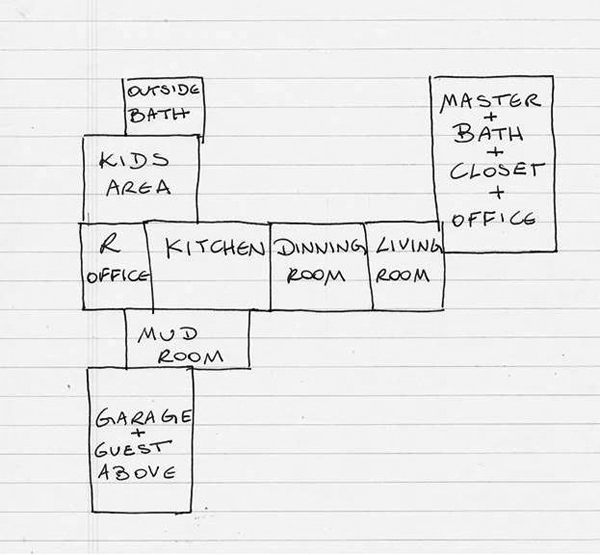 OUTSIDE
BATH
KIDS
AREA
MASTER
+
BATH
+
CLOSET
+
OFFICE
R
OFFICE
KITCHEN
DINNING
ROOM
LIVING
ROOM
MUD
ROOM
GARAGE
+
GUEST
ABOVE